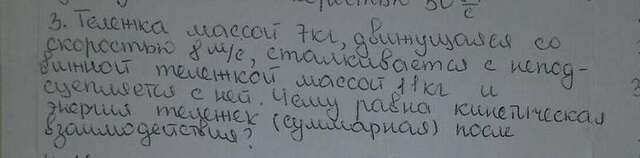 30 м/с
3. Тележка массой 7кг, движущаяся со
скоростью 8 м/с, сталкивается с непод-
вижной тележкой массой 11кг и
сцепляется с ней. Чему равна кинетическая
энергия тележек (суммарная) после
взаимодействия?